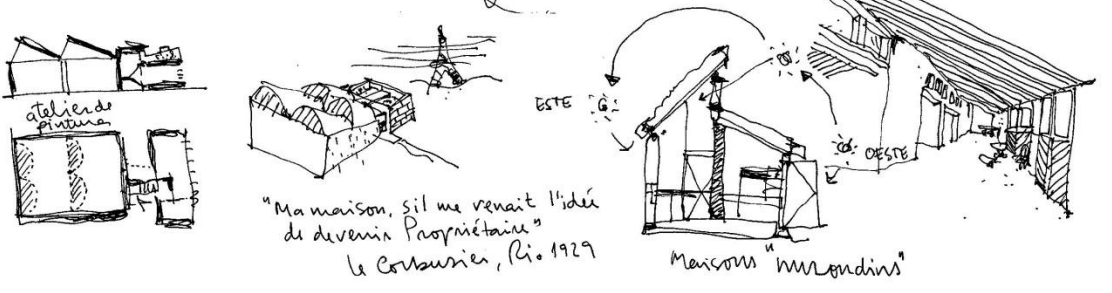 atelier de
pinturas
"Ma maison, s'il me venait l'idée
de devenir Propriétaire"
le Corbusier, Rio 1929
ESTE
OESTE
Maisons "murondins"